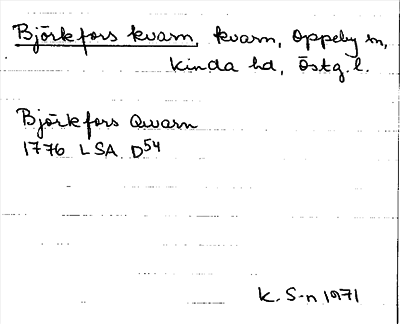 Björkfors kvarn, kvarn, Oppeby sn,
Kinda hd, Östg. l.
Björkfors Qwarn
1776 LSA D54
K. S-n 1971